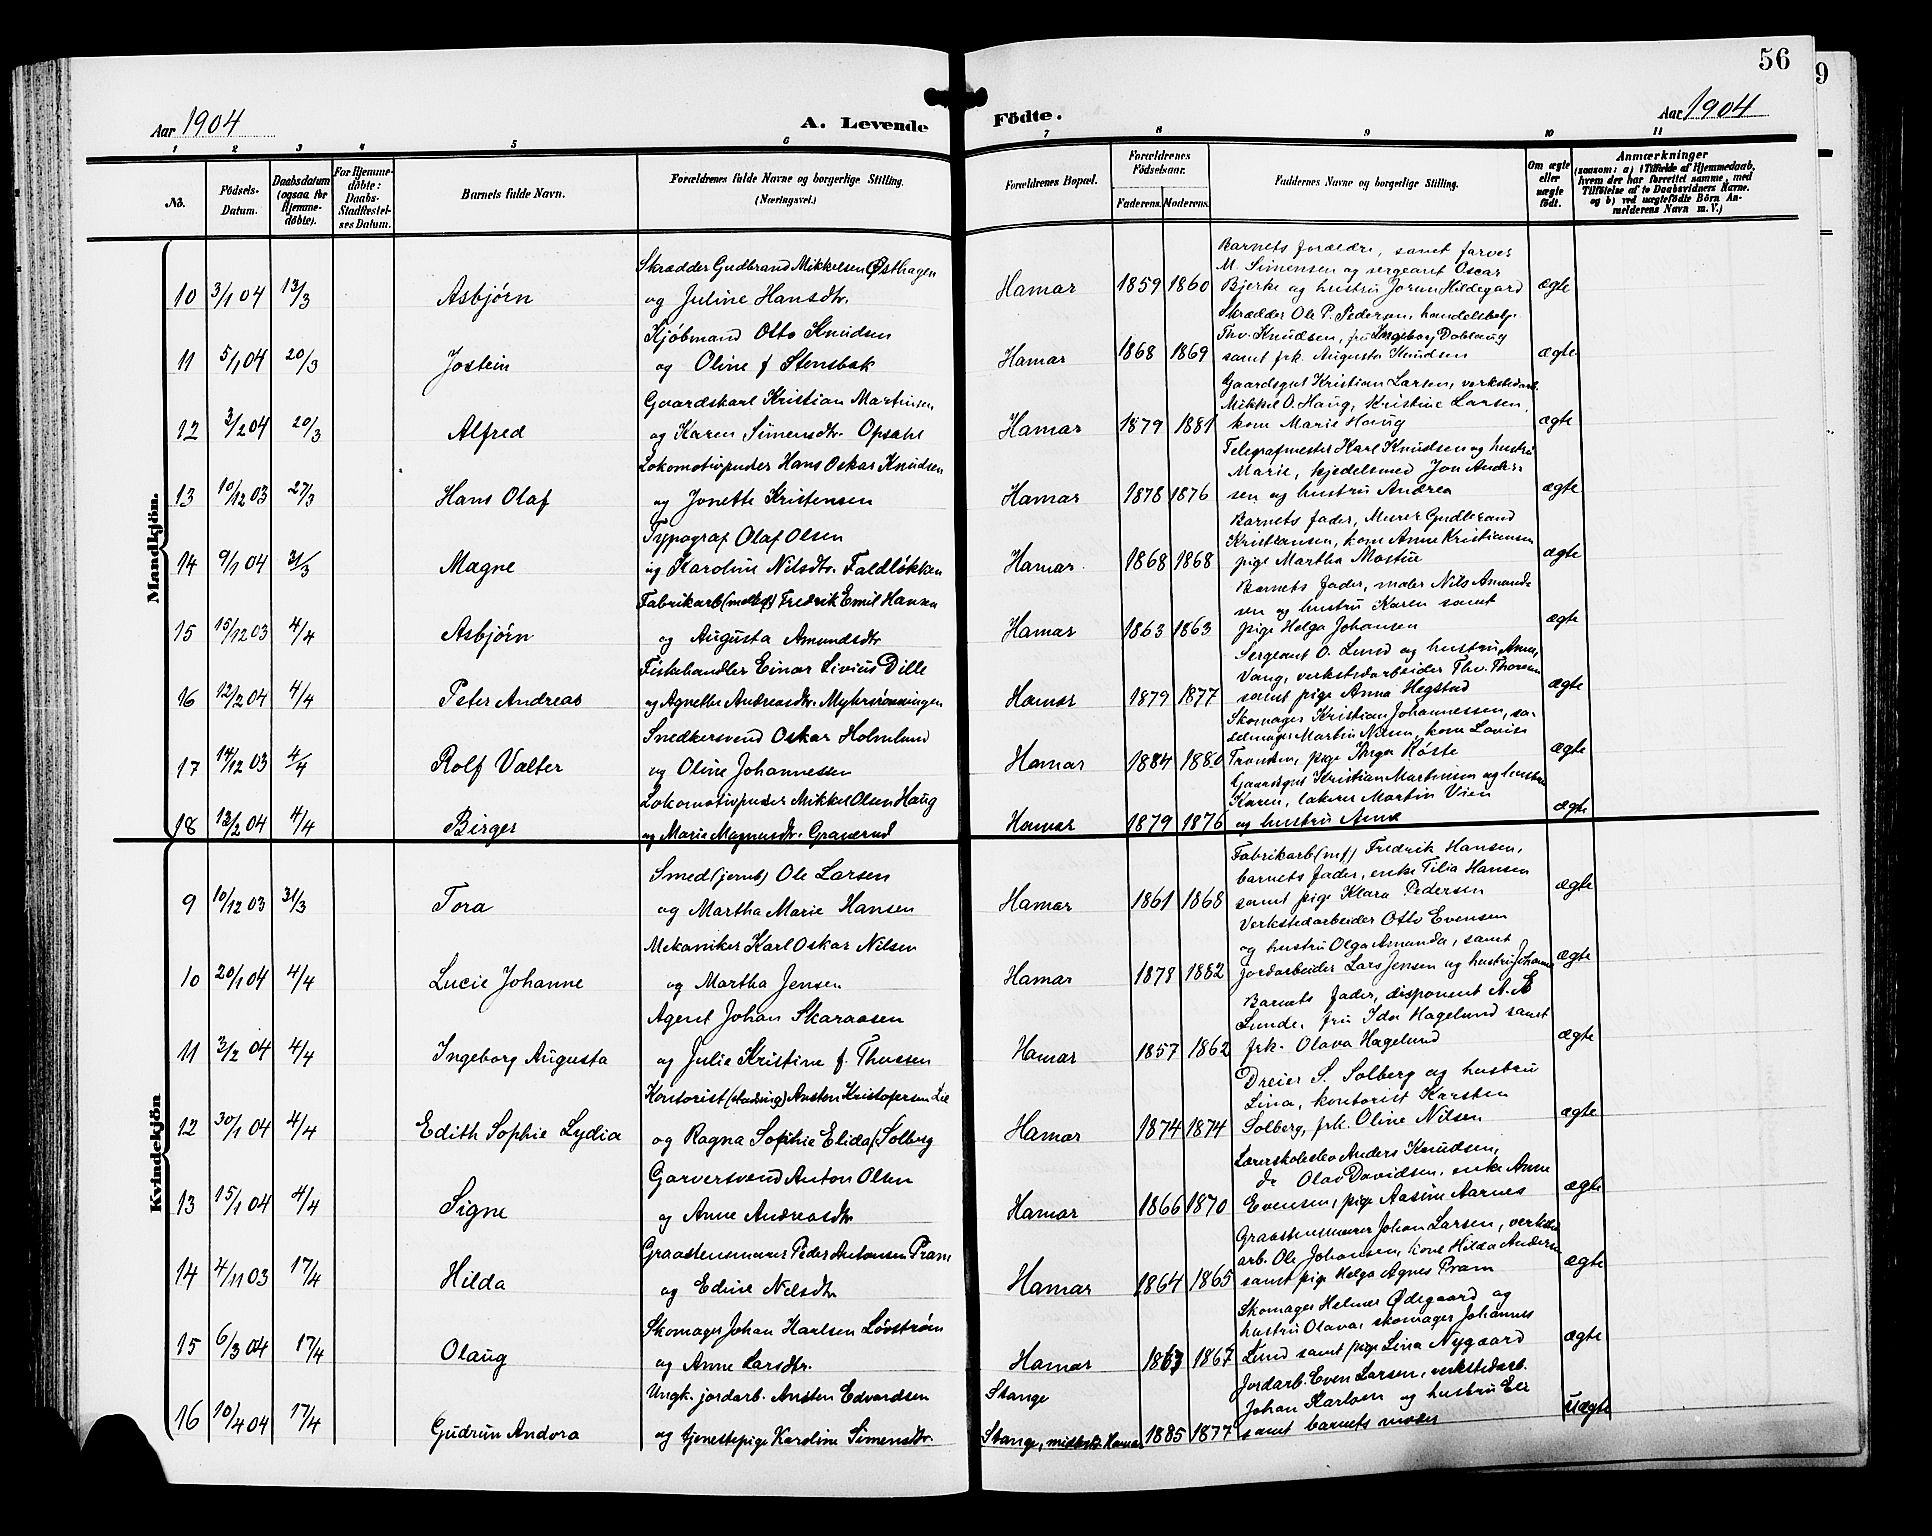 56
9
Aar 1904
A. Levende
Födte.
Aar 1904
1 2 3 4 5 6 7 8 9 10 11
No.
Födsels-Datum.
Daabsdatum (ogsaa for Hjemme-döbte).
For Hjemme-döbte: Daabs-Stadfæstel-ses Datum.
Barnets fulde Navn.
Forældrenes fulde Navne og borgerlige Stilling. (Næringsvei.)
Forældrenes Bopæl.
Forældrenes Födselsaar.
Faderens. Moderens.
Faddernes Navne og borgerlige Stilling.
Om ægte eller uægte födt.
Anmærkninger
(saasom: a) i Tilfælde af Hjemmedaab, hvem der har forrettet samme, med Tilföielse af to Daabsvidners Navne. og b) ved uægtefödte Börn An-melderens Navn m. V.)
Mandkjön.
10 3/1 04 13/3 Asbjørn
Skrædder Gudbrand Mikkelsen Østhagen
og Juline Hansdtr.
Hamar 1859 1860
Barnets forældre, samt farver
M. Simensen og sergeant Oscar
Bjerke og hustru Jorun Hildegard
ægte
11 5/1 04 20/3 Jostein
Kjøbmand Otto Knudsen
og Oline f Stensbak
Hamar 1868 1869
Skrædder Ole P. Pedersen, handelsbetj.
Thv. Knudsen, fru Ingeborg Dahlaug
samt frk. Augusta Knudsen
ægte
12 3/2 04 20/3 Alfred
Gaardskarl Kristian Martinsen
og Karen Simensdtr. Opsahl
Hamar 1879 1881
Gaardsgut Kristian Larsen, verkstedarb.
Mikkel O. Haug, Kristine Larsen,
kone Marie Haug
ægte
13 10/12 03 27/3 Hans Olaf
Lokomotivpudser Hans Oskar Knudsen
og Jonette Kristensen
Hamar 1878 1876
Telegrafmester Karl Knudsen og hustru
Marie, kjedelsmed Jon Ander-
sen og hustru Andrea
ægte
14 9/1 04 31/3 Magne
Typograf Olaf Olsen
og Karoline Nilsdtr. Faldløkken
Hamar. 1868 1868
Barnets fader, Murer Gudbrand
Kristiansen, kone Anne Kristiansen
pige Martha Mostue
ægte
15 15/12 03 4/4 Asbjørn
Fabrikarb. Fredrik Emil Hansen
og Augusta Amundsdtr
Hamar 1863 1863
Barnets fader, maler Nils Amund-
sen og hustru Karen samt
pige Helga Johansen
ægte
16 12/2 04 4/4 Peter Andreas
Fiskehandler Einar Livius Dille
og Agnethe Andreasdtr.
Hamar 1879 1877
Sergeant O. Lund og hustru Anne,
Vang, verkstedarbeider Thv. Thoresen
samt pige Anna Hegstad
ægte
17 14/12 03 4/4 Rolf Valter
Snedkersvend Oskar Holmlund
og Oline Johannessen
Hamar 1884 1880
Skomager Kristian Johannessen, sa-
delmager Martin Nilsen, kone Lovise
Tronsen, pige Inga Røste
ægte
18 13/2 04 4/4 Birger
Lokomotivpudser Mikkel Olsen Haug
og Marie Magnusdtr. Graverud
Hamar 1879 1876
Gaardsgut Kristian Martinsen og hustru
Karen, lakerer Martin Vien
og hustru Anne
ægte
Kvindekjön
9 10/12 03 31/3 Tora
Smed (jernb) Ole Larsen
og Martha Marie Hansen
Hamar 1861 1868
Fabrikarb (mf) Fredrik Hansen,
barnets fader, enke Tilia Hansen
samt pige Klara Pedersen
ægte
10 20/1 04 4/4 Lucie Johanne
Mekaniker Karl Oskar Nilsen
og Martha Jensen
Hamar 1878 1882
Verkstedarbeider Otto Evensen
og hustru Olga Amanda, samt
jordarbeider Lars Jensen og hustru Johanne
ægte
11 3/2 04 4/4 Ingeborg Augusta
Agent Johan Skaraasen
og Julie Kristine f. Thuesen
Hamar 1857 1862
Barnets fader, disponent A. E
Lunde, fru Ida Hagelund samt
frk. Olava Hagelund
ægte
12 30/1 04 4/4 Edith Sophie Lydia
Kontorist Austen Kristofersen Lie
og Ragna Sophie Elida f Solberg
Hamar 1874 1874
Dreier S. Solberg og hustru
Lina, kontorist Karsten
Solberg, frk. Oline Nilsen
ægte
13 15/1 04 4/4 Signe
Garversvend Anton Olsen
og Anne Andreasdtr
Hamar 1866 1870
Lærerskoleelev Anders Knudsen,
do Olav Davidsen, enke Anne
Evensen, pige Aasine Aarnes
ægte
14 4/11 03 17/4 Hilda
Graastensmurer Peder Antonsen Pram
og Edine Nilsdtr
Hamar 1864 1865
Graastensmurer Johan Larsen, verksted-
arb. Ole Johansen, kone Hilda Andersen
samt pige Helga Agnes Pram
ægte
15 6/3 04 17/4 Olaug
Skomager Johan Karlsen Løvstrøm
og Anne Larsdtr.
Hamar 1863 1867
Skomager Helmer Ødegaard og
hustru Olava, skomager Johannes
Lund samt pige Lina Nygaard
ægte
16 10/4 04 17/4 Gudrun Andora
Ungk. jordarb. Austen Edvardsen
og tjenestepige Karoline Simensdtr.
Stange
Stange, midlert. Hamar 1885 1877
Jordarb. Even Larsen, verkstedarb.
Johan Karlsen og hustru Eli
samt barnets moder
uægte